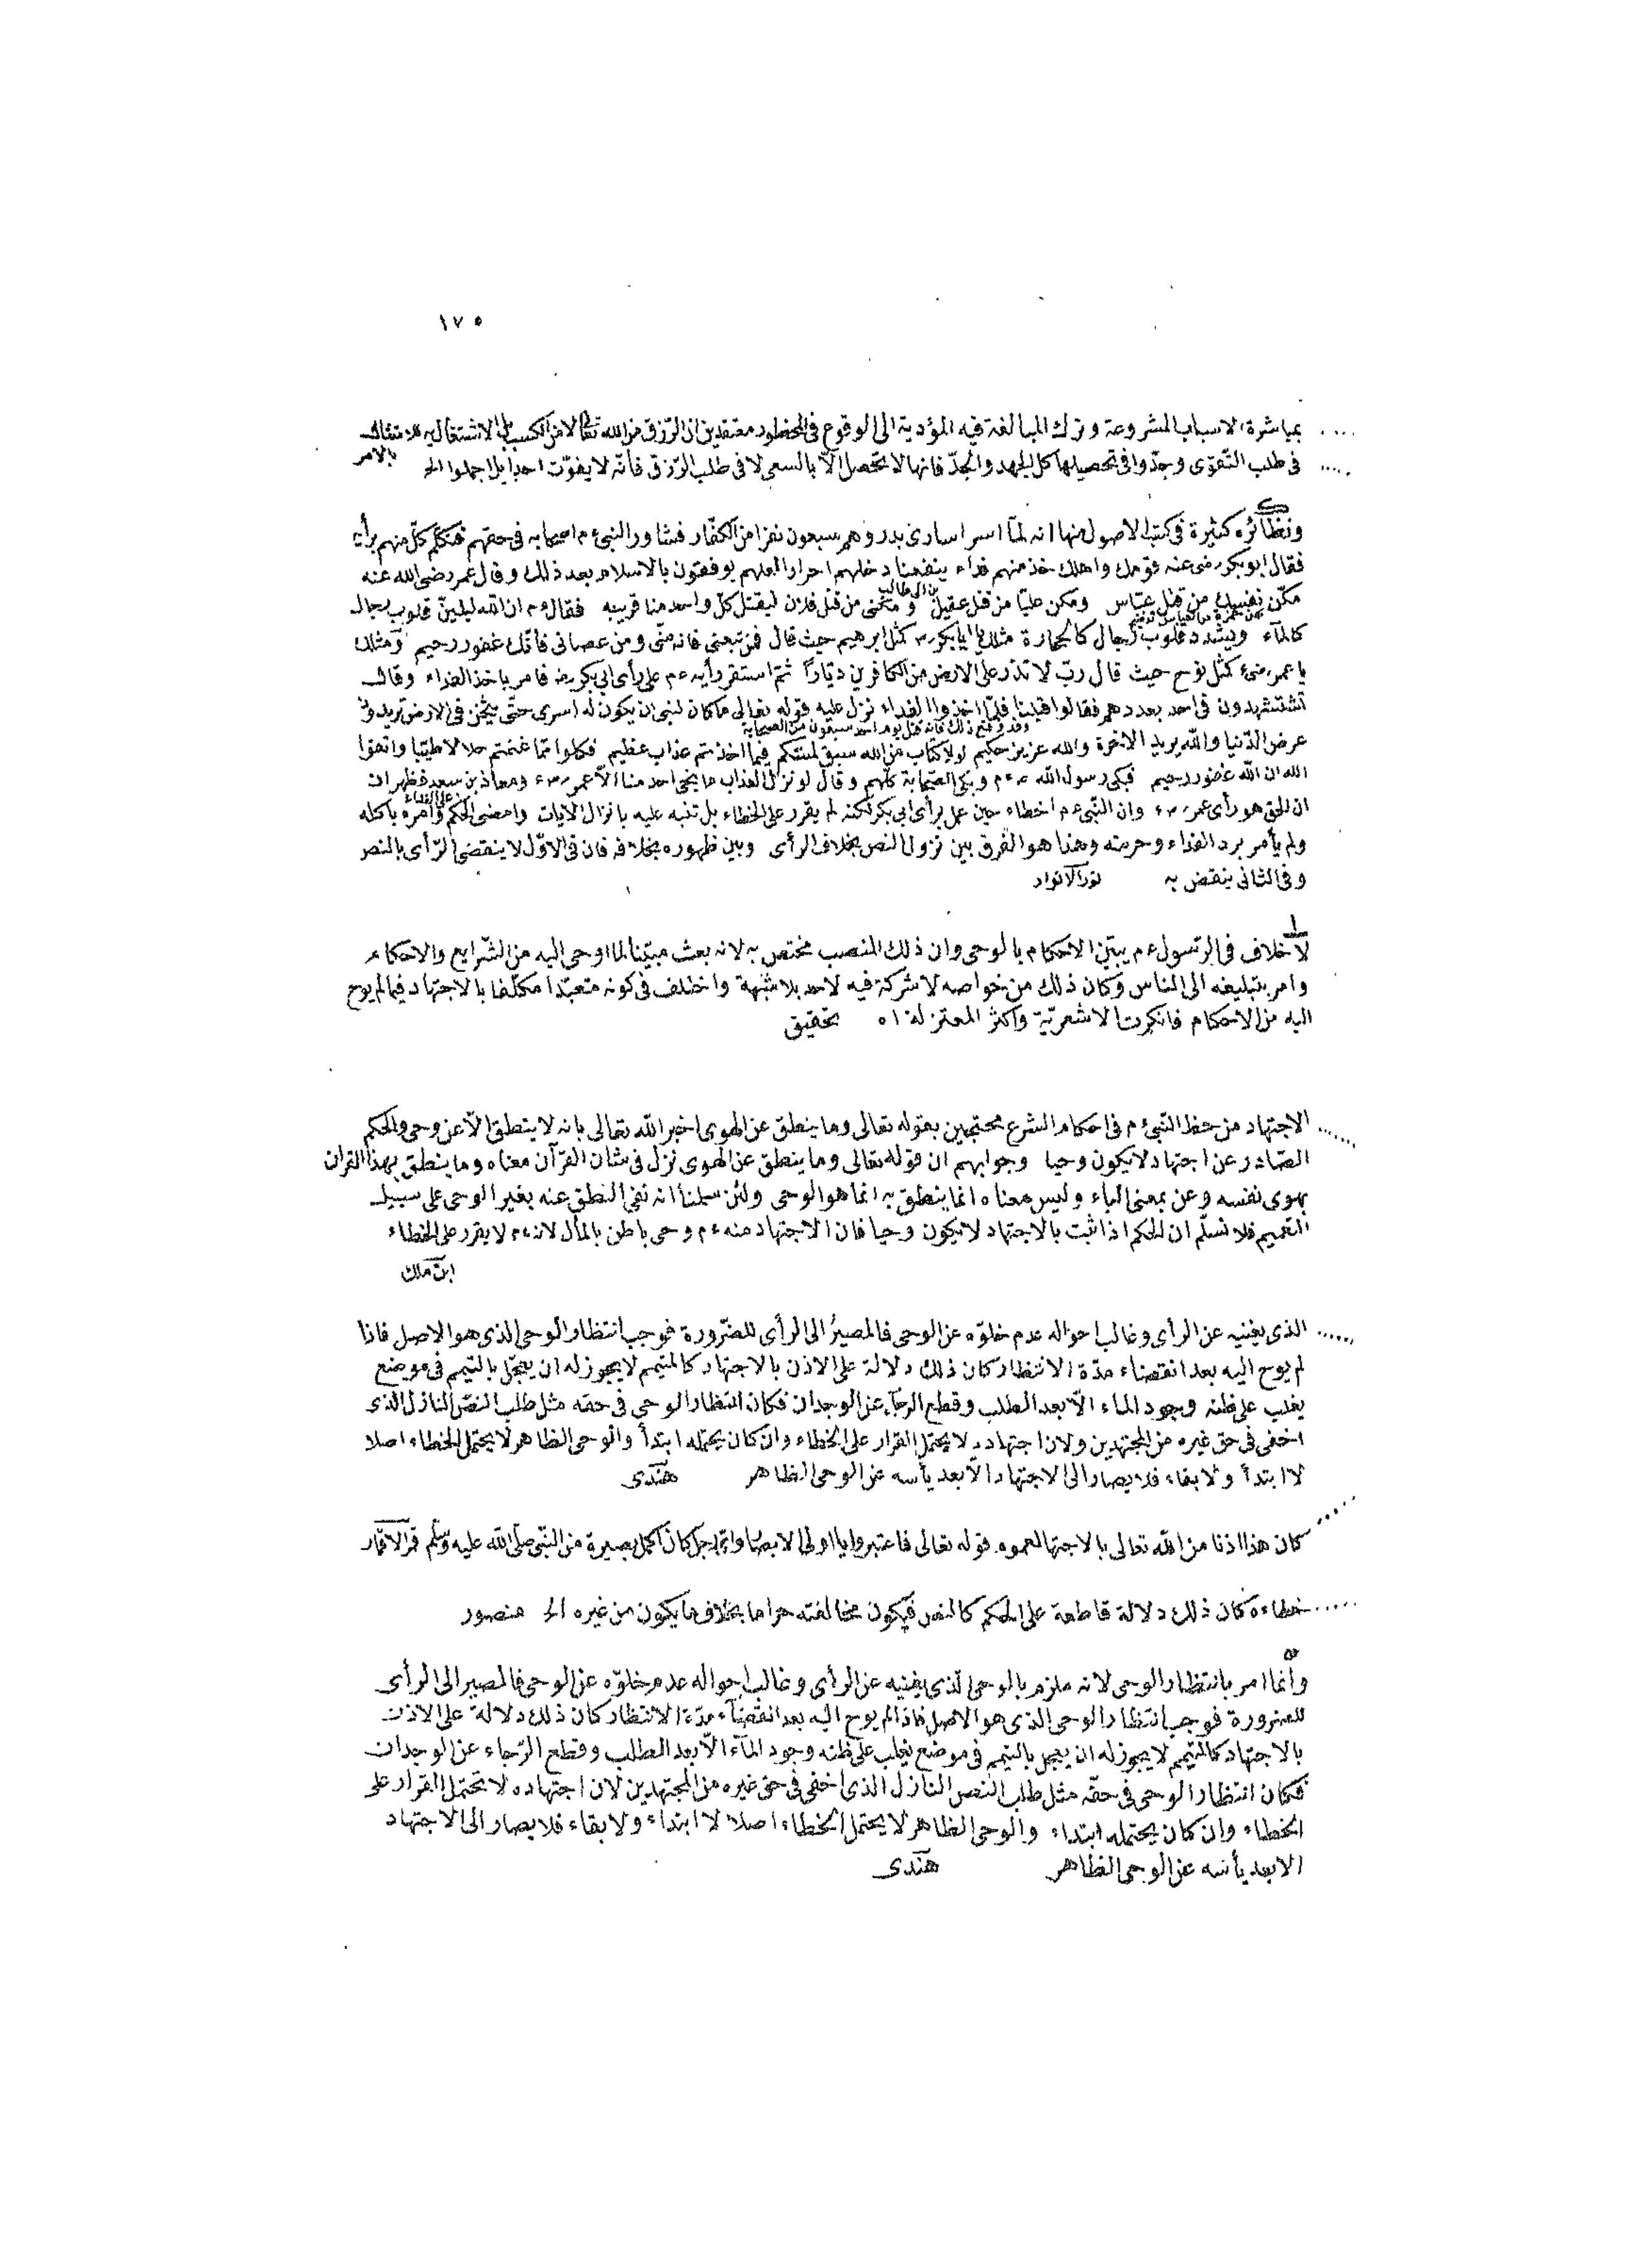 ١٧٥
بمباشرة الاسباب المشروعة وترك المبالغة فيه المؤدية الى الوقوع فى المحظور معتقدين ان الرّزق من الله تعالى لا من الكسب بل الاشتغال به للامتثال
بالامر
فى طلب التّقوى وجدّوا فى تحصيلها كل الجهد والجدّ فانها لا تحصل الّا بالسعى لا فى طلب الرّزق فأنّه لا يفوّت احدا بل اجملوا الخ
ونظائره كثيرة فى كتب الاصول منها انه لمّا اسر اسارى بدر وهم سبعون نفرا من الكفّار فشاور النبىءم اصحابه فى حقهم فتكلّم كلّ منهم برأيه
فقال ابو بكر رضى عنه قومك واهلك خذ منهم فداء ينفعنا وخلهم احرارا لعلهم يوفقون بالاسلام بعد ذلك وقال عمر رضى الله عنه
مكّن نفسك من قتل عبّاس ومكن عليّا من قتل عقيل بن ابى طالب ومكّنى من قتل فلان ليقتل كلّ واحد منا قريبه فقال ءم ان الله ليلينّ قلوب رجال
كالماء ويشدد قلوب رجال كالحجارة مثلك يا ابا بكر كمثل ابرهيم حيث قال فمن تبعنى فانه منّى ومن عصانى فأنّك غفور رحيم ومثلك
يا عمر كمثل نوح حيث قال ربّ لا تذر على الارض من الكافرين ديّارا ثمّ استقر رأيه ءم على رأى ابى بكر رض فامر باخذ الفداء وقال
تستشهدون فى احد بعددهم فقالوا قبلنا فلمّا اخذوا الفداء نزل عليه قوله تعالى ما كان لنبى ان يكون له اسرى حتّى يثخن فى الارض تريدون
وقد وقع ذلك فانه قتل يوم احد سبعون من الصحابة
عرض الدّنيا والله يريد الاخرة والله عزيز حكيم لولا كتاب من الله سبق لمسّكم فيما اخذتم عذاب عظيم فكلوا ممّا غنمتم حلالا طيّبا واتقوا
الله ان الله غفور رحيم فبكى رسول الله ءم وبكى الصّحابة كلّهم وقال لو نزل العذاب ما ينجى احد منا الّا عمر ومعاذ بن سعد فظهر ان
ان الحق هو رأى عمر وان النّبى ءم اخطاء حين عمل برأى ابى بكر لكنه لم يقرر على الخطاء بل تنبه عليه بانزال الآيات وامضى الحكم على الفداء وامره باكله
ولم يأمر برد الفداء وحرمته وهذا هو الفرق بين نزول النص بخلاف الرأى وبين ظهوره بخلافه فان فى الاوّل لا ينقض الرّأى بالنص
وفى الثانى ينقض به نور الانوار
لا خلاف فى الرّسول ءم يبيّن الاحكام بالوحى وان ذلك المنصب مختص به لانه بعث مبيّنا لما اوحى اليه من الشّرايع والاحكام
وامر بتبليغه الى الناس وكان ذلك من خواصه لا شركة فيه لاحد بلا شبهة واختلف فى كونه متعبّدا مكلّفا بالاجتهاد فيما لم يوح
اليه من الاحكام فانكرت الاشعريّة واكثر المعتزلة اه تحقيق
الاجتهاد من حظ النّبىءم فى احكام الشرع محتجين بقوله تعالى وما ينطق عن الهوى اخبر الله تعالى بانه لا ينطق الّا عن وحى والحكم
الصّادر عن اجتهاد لا يكون وحيا وجوابهم ان قوله تعالى وما ينطق عن الهوى نزل فى شان القرآن معناه وما ينطق بهذا القران
بهوى نفسه وعن بمعنى الباء وليس معناه انما ينطق به انما هو الوحى ولئن سلمنا انه نفى النطق عنه بغير الوحى على سبيل
التعميم فلا نسلّم ان الحكم اذا ثبت بالاجتهاد لا يكون وحيا فان الاجتهاد منه ءم وحى باطن بالمأل لانه ءم لا يقرر على الخطاء
ابن ملك
الذى يغنيه عن الرأى وغالب احواله عدم خلوّه عن الوحى فالمصيرُ الى الرأى للضّرورة فوجب انتظار الوحى الذى هو الاصل فاذا
لم يوح اليه بعد انقضاء مدّة الانتظار كان ذلك دلالة على الاذن بالاجتهاد كالمتيمم لا يجوز له ان يعجّل بالتيمم فى موضع
يغلب على ظنه وجود الماء الّا بعد الطلب وقطع الرجاء عن الوجدان فكان انتظار الوحى فى حقه مثل طلب النصّ النازل الذى
اخفى فى حق غيره من المجتهدين ولان اجتهاده لا يحتمل القرار على الخطاء وان كان يحتمله ابتدأ والوحى الظاهر لا يحتمل الخطاء اصلا
لا ابتدأ ولا بقاء فلا يصار الى الاجتهاد الّا بعد يأسه عن الوحى الظاهر هندى
كان هذا اذنا من الله تعالى بالاجتهاد لعموم قوله تعالى فاعتبروا يا اولى الابصار كان اكمل بصيرة من النّبى صلى الله عليه وسلّم قمر الاقمار
خطاءه كان ذلك دلالة قاطعة على الحكم كالنص فيكون مخالفته حراما بخلاف ما يكون من غيره الخ منصور
وانّما امر بانتظار الوحى لانه ملزم بالوحى الّذى يغنيه عن الرأى وغالب احواله عدم خلوّه عن الوحى فالمصير الى الرأى
للضرورة فوجب انتظار الوحى الذى هو الاصل فاذا لم يوح اليه بعد انقضآء مدّة الانتظار كان ذلك دلالة على الاذن
بالاجتهاد كالتيمّم لا يجوز له ان يعجل بالتيمم فى موضع يغلب على ظنه وجود المآء الّا بعد الطلب وقطع الرّجاء عن الوجدان
فكان انتظار الوحى فى حقّه مثل طلب النص النازل الذى اخفى فى حق غيره من المجتهدين لان اجتهاده لا تحتمل القرار على
الخطاء وان كان يحتمله ابتداء والوحى الظاهر لا يحتمل الخطاء اصلا لا ابتداء ولا بقاء فلا يصار الى الاجتهاد
الا بعد يأسه عن الوحى الظاهر هندى